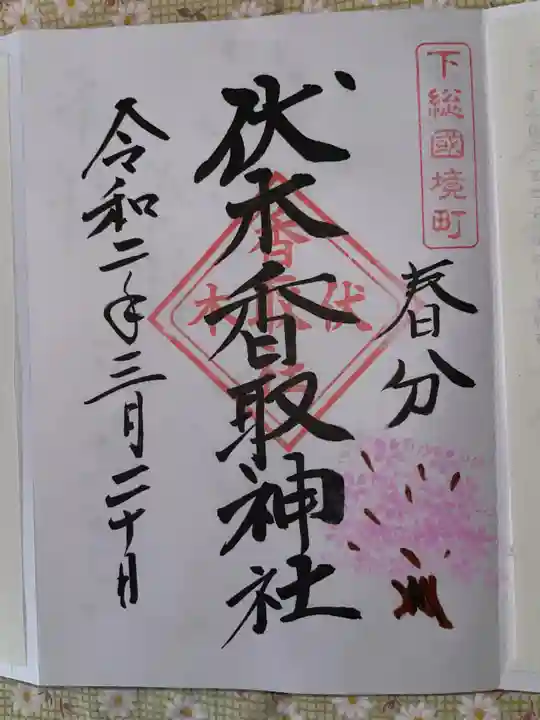 下総國境町
春分
伏木香取神社
伏木
香取
令和二年三月二十日